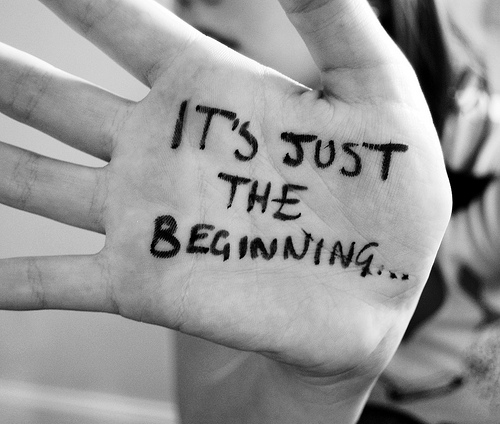 IT'S JUST
THE
BEGINNING...